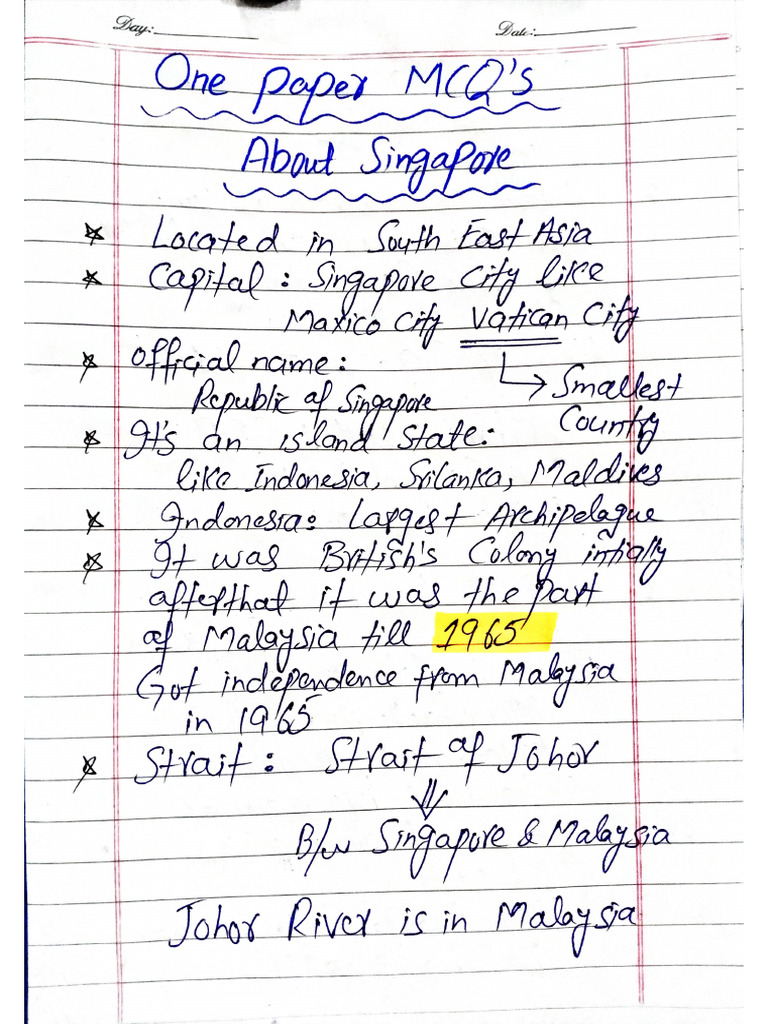 Day: Date:
One Paper MCQ's
About Singapore
Located in South East Asia
Capital: Singapore City like
Maxico City Vatican City
Official name:
→ Smallest
Republic of Singapore
Country
It's an island state:
like Indonesia, Srilanka, Maldives
Indonesia: Largest Archipelague
It was British's Colony intially
afterthat it was the part
of Malaysia till 1965
Got independence from Malaysia
in 1965
Strait: Strait of Johor
⇓
B/w Singapore & Malaysia
Johor River is in Malaysia